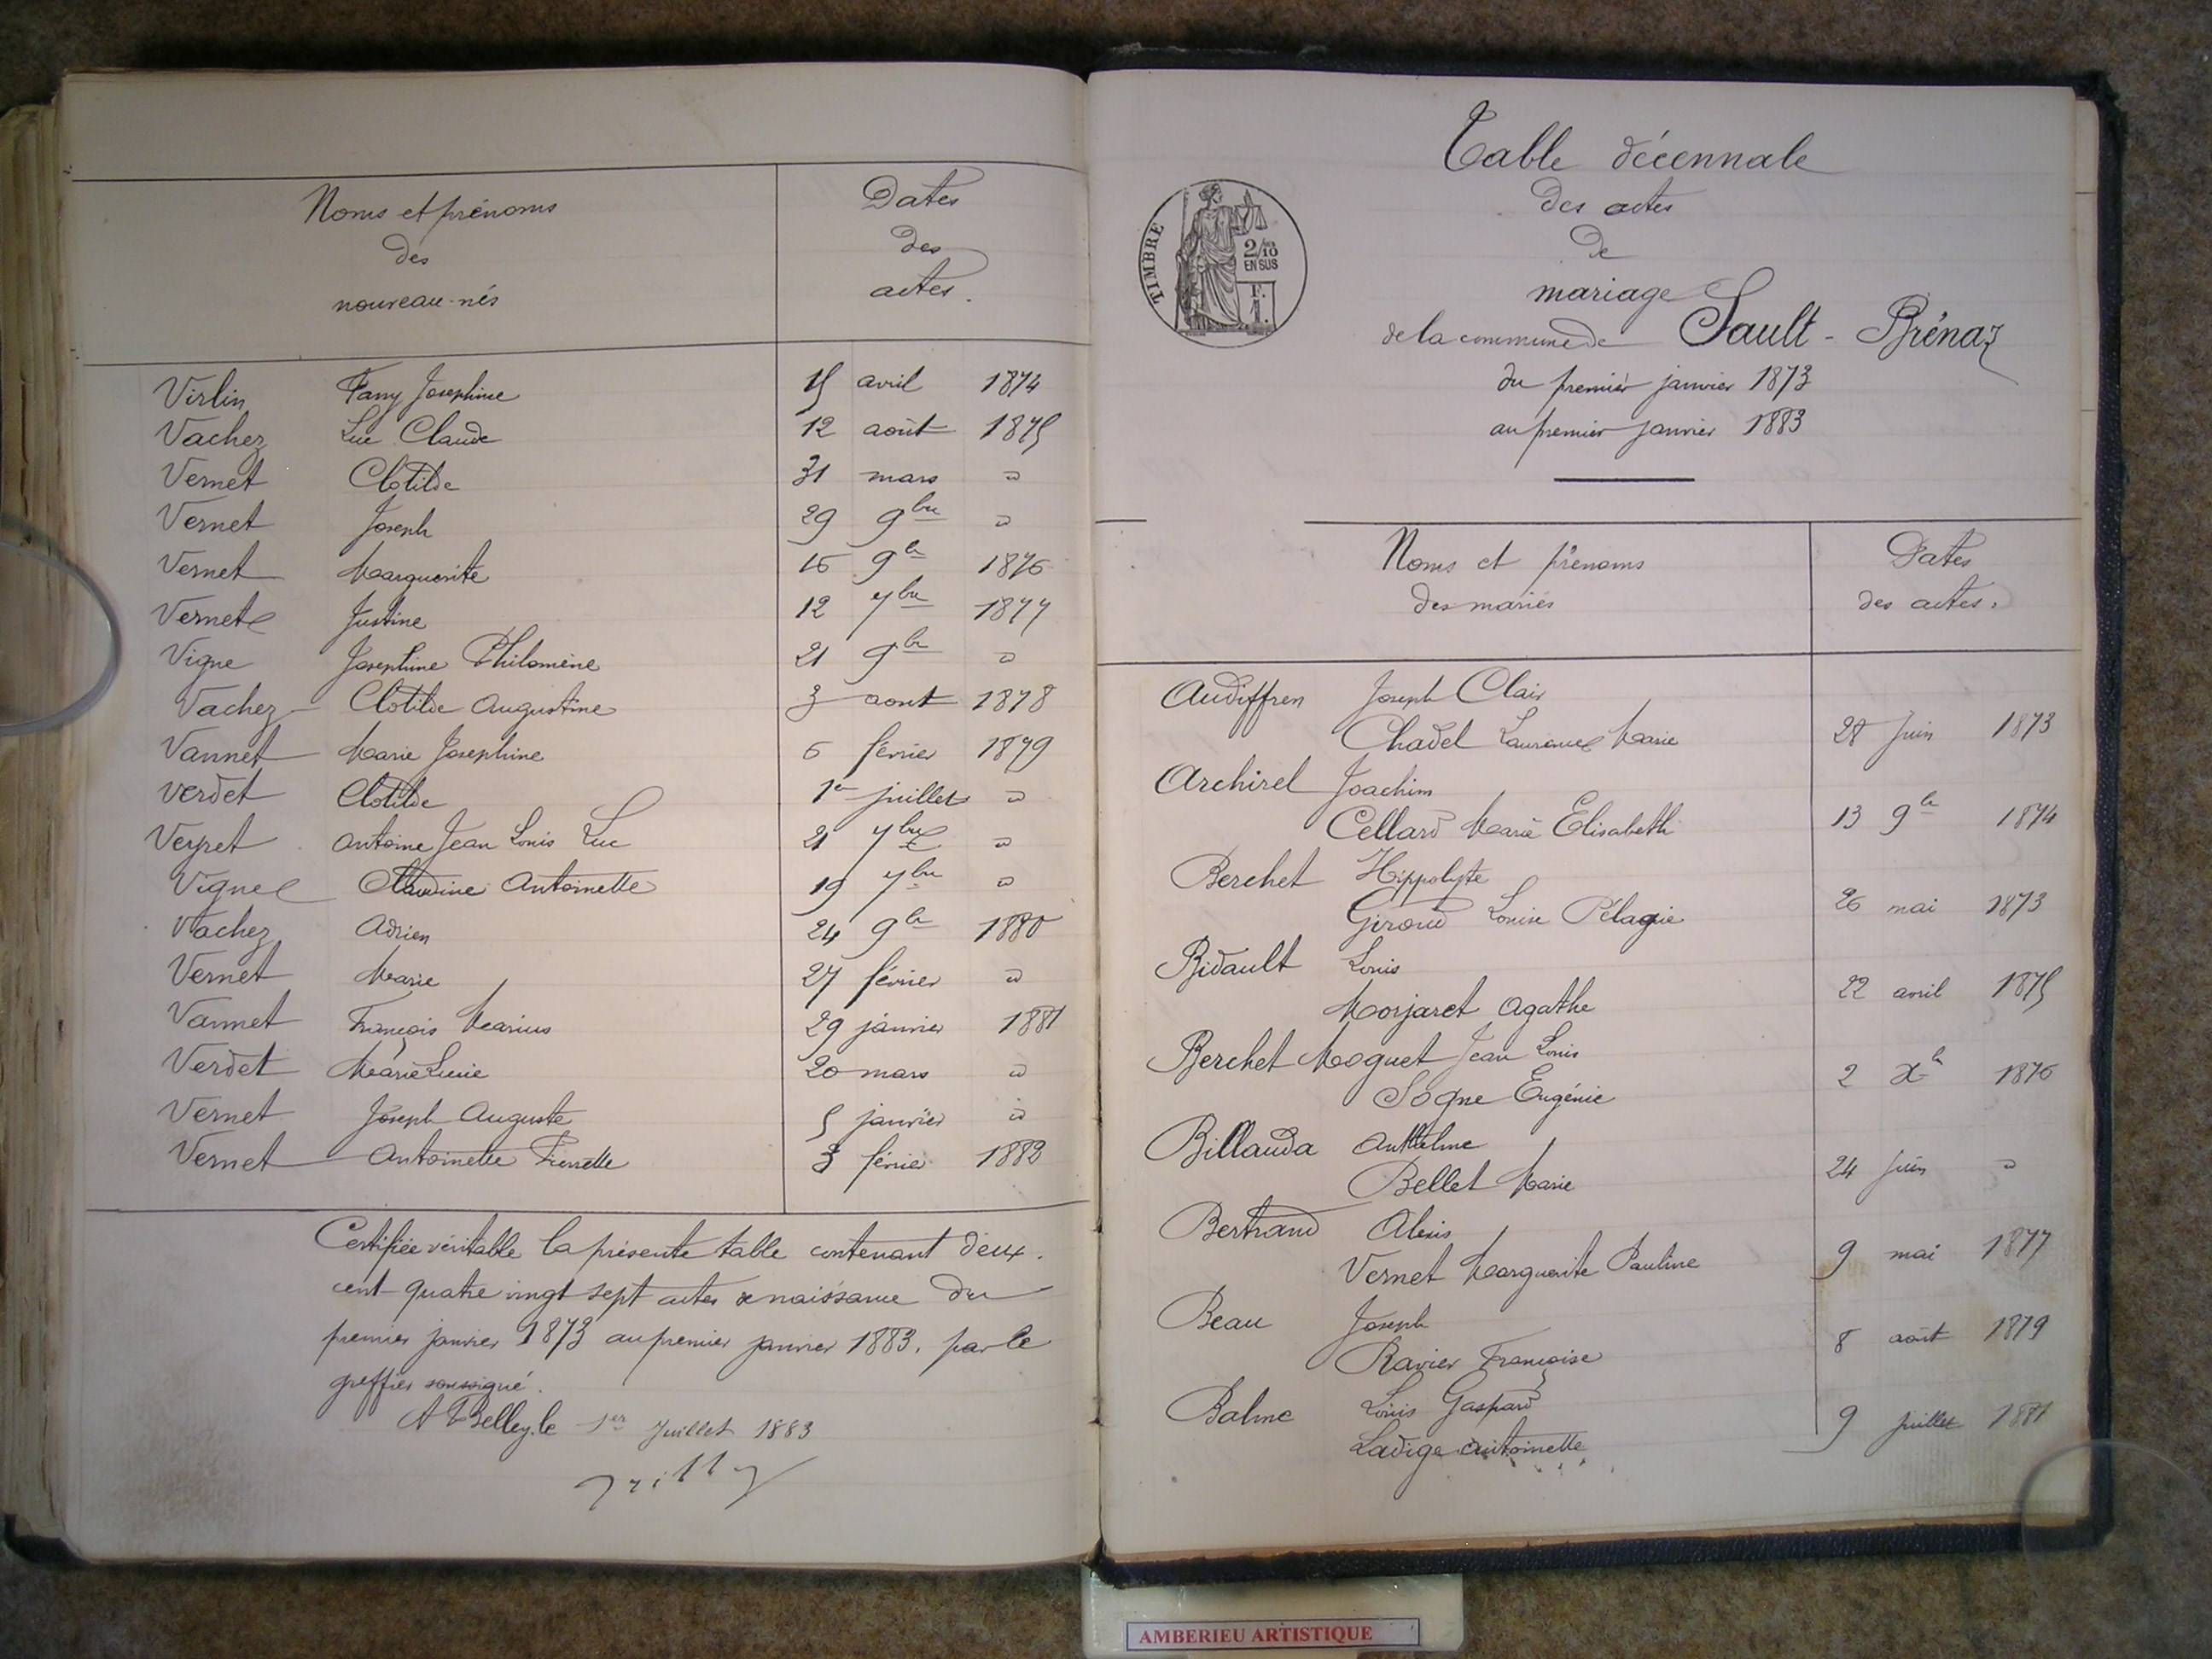 Noms et prénoms
des
nouveau-nés
Dates
des
actes.
Virlin Fany Josephine 15 avril 1874
Vachez Luc Claude 12 août 1875
Vernet Clotilde 31 mars d
Vernet Joseph 29 9bre d
Vernet Marguerite 16 9b 1876
Vernet Justine 12 7bre 1877
Vigne Josephine Philomène 21 9b d
Vachez Clotilde Augustine 3 aout 1878
Vannet Marie Josephine 6 février 1879
Verdet Clotilde 1er juillet d
Veyret Antoine Jean Louis Luc 21 7bre d
Vigne Claudine Antoinette 19 7bre d
Vachez Adrien 24 9b 1880
Vernet Marie 27 février d
Vannet François Marius 29 janvier 1881
Verdet Marie Lucie 20 mars d
Vernet Joseph Auguste 5 janvier d
Vernet Antoinette Pierrette 3 février 1883
Certifiée véritable la présente table contenant deux
cent quatre vingt sept actes de naissance du
premier janvier 1873 au premier janvier 1883, par le
greffier soussigné.
A Belley, le 1er Juillet 1883
Table décennale
des actes
De
mariage
de la commune de Sault-Brénaz
du premier janvier 1873
au premier janvier 1883
TIMBRE
2/10
EN SUS
F.
1.
Noms et prénoms
des mariés
Dates
des actes.
Audiffren Joseph Clair
Chadel Laurence Marie 28 Juin 1873
Archirel Joachim
Cellard Marie Elisabeth 13 9b 1874
Berchet Hippolyte
Giroud Louise Pélagie 26 mai 1873
Bidault Louis
Morjaret Agathe 22 avril 1875
Berchet Moguet Jean Louis
Sogne Eugénie 2 Xb 1876
Billauda Anthelme
Bellet Marie 24 Juin d
Bertrand Alexis
Vernet Marguerite Pauline 9 mai 1877
Beau Joseph
Ravier Françoise 8 août 1879
Balme Louis Gaspard
Ladige Antoinette 9 juillet 1881
AMBERIEU ARTISTIQUE